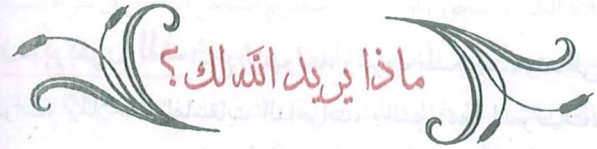 ماذا يريد الله لك؟